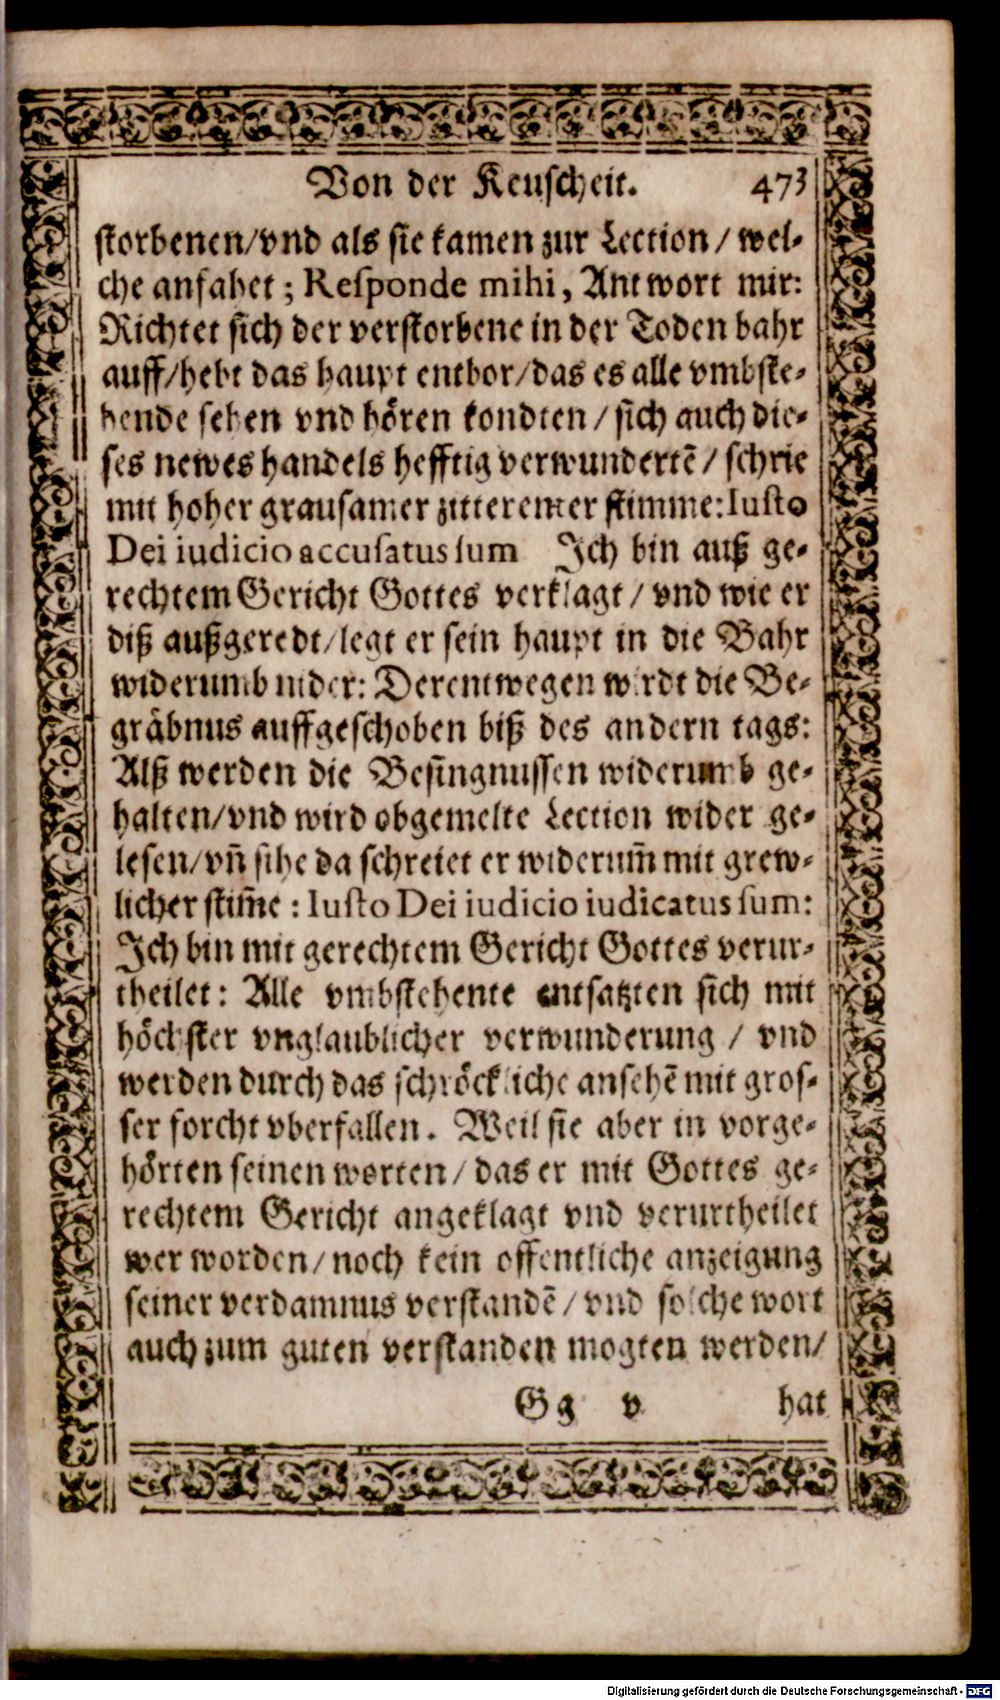 Von der Keuscheit. 473
storbenen/vnd als sie kamen zur Lection / wel-
che anfahet ; Responde mihi, Antwort mir:
Richtet sich der verstorbene in der Toden bahr
auff/hebt das haupt entbor/das es alle vmbste-
hende sehen vnd hören kondten / sich auch die-
ses newes handels hefftig verwundertē / schrie
mit hoher grausamer zitterenter stimme: Iusto
Dei iudicio accusatus sum Ich bin auß ge-
rechtem Gericht Gottes verklagt / vnd wie er
diß außgeredt/legt er sein haupt in die Bahr
widerumb nider: Derentwegen wirdt die Be-
gräbnus auffgeschoben biß des andern tags:
Alß werden die Besingnussen widerumb ge-
halten/vnd wird obgemelte Lection wider ge-
lesen/vn̄ sihe da schreiet er widerum̄ mit grew-
licher stim̄e : Iusto Dei iudicio iudicatus sum:
Ich bin mit gerechtem Gericht Gottes verur-
theilet: Alle vmbstehente entsatzten sich mit
höchster vnglaublicher verwunderung / vnd
werden durch das schröckliche ansehē mit gros-
ser forcht vberfallen. Weil sie aber in vorge-
hörten seinen worten / das er mit Gottes ge-
rechtem Gericht angeklagt vnd verurtheilet
wer worden/noch kein offentliche anzeigung
seiner verdamnus verstandē / vnd solche wort
auch zum guten verstanden mogten werden/
Gg v hat
Digitalisierung gefördert durch die Deutsche Forschungsgemeinschaft - DFG